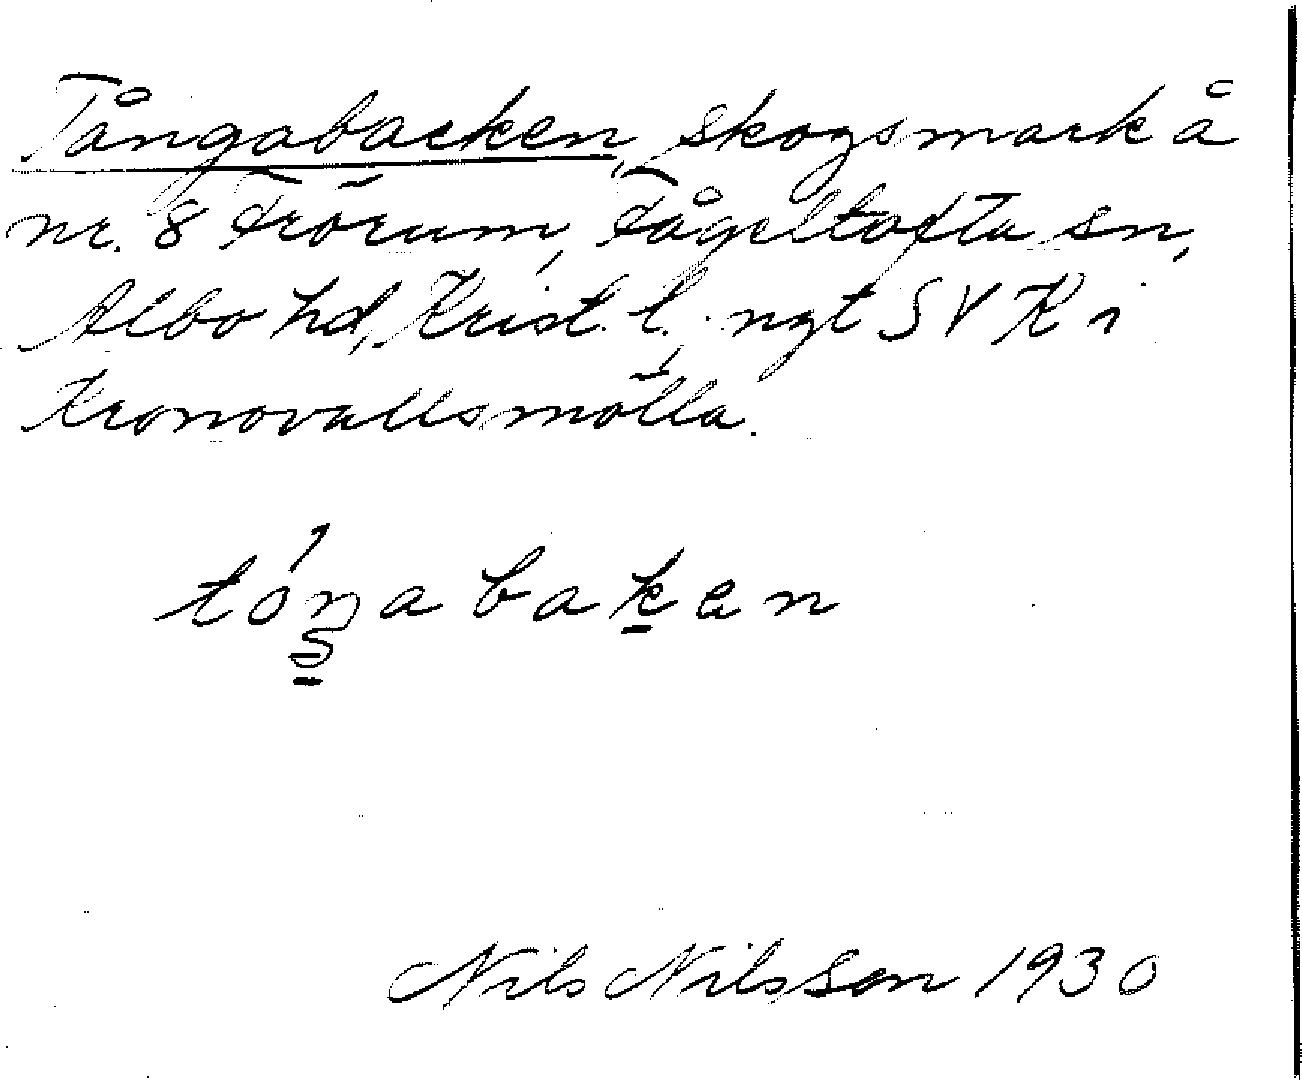 Tångabacken, skogsmark å
nr. 8 Frörum, Fågeltofta sn,
Albo hd, Krist. l. ngt SV K i
Kronovallsmölla.
tóŋabaken
Nils Nilsson 1930